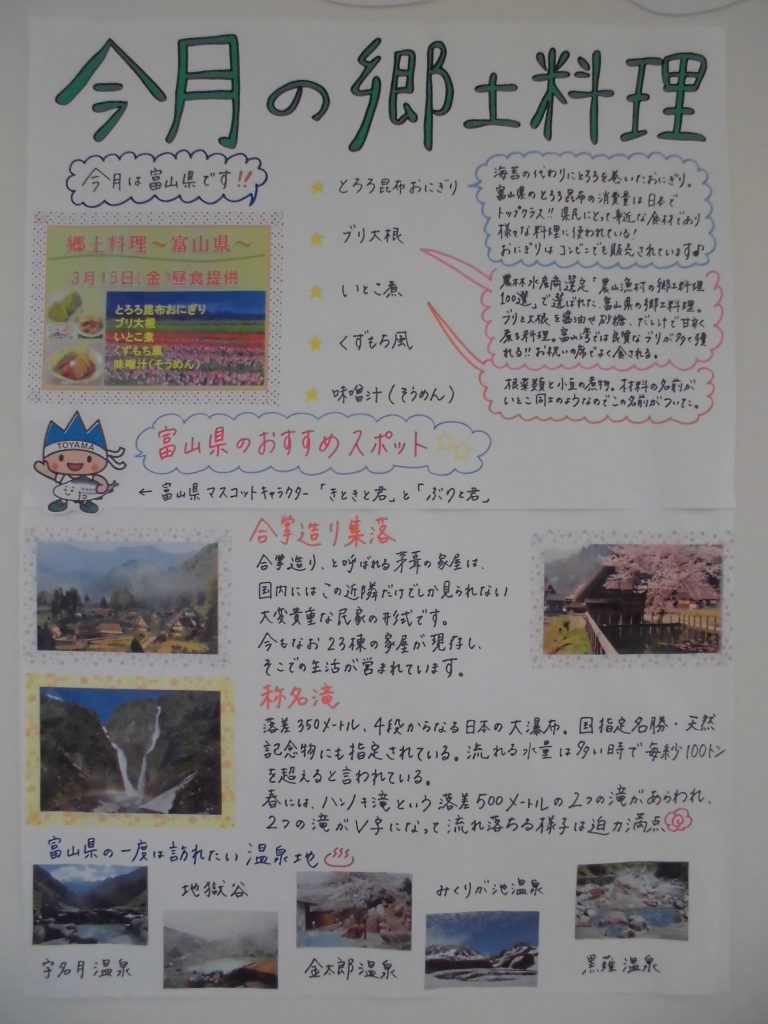 今月の郷土料理
今月は富山県です!!
郷土料理～富山県～
3月15日(金)昼食提供
とろろ昆布おにぎり
ブリ大根
いとこ煮
くずもち風
味噌汁(そうめん)
とろろ昆布おにぎり
ブリ大根
いとこ煮
くずもち風
味噌汁(そうめん)
海苔の代わりにとろろを巻いたおにぎり。
富山県のとろろ昆布の消費量は日本で
トップクラス!! 県民にとって身近な食材であり
様々な料理に使われている!
おにぎりはコンビニでも販売されています♪
農林水産省選定「農山漁村の郷土料理
100選」で選ばれた、富山県の郷土料理。
ブリと大根を醤油や砂糖、だし汁で甘辛く
煮る料理。富山湾では良質なブリが多く獲
れる!! お祝いの席でよく食される。
根菜類と小豆の煮物。材料の名前が
いとこ同士のようなのでこの名前がついた。
TOYAMA
富山県のおすすめスポット☆☆
← 富山県マスコットキャラクター「きときと君」と「ぶりと君」
合掌造り集落
合掌造り、と呼ばれる茅葺の家屋は、
国内にはこの近隣だけでしか見られない
大変貴重な民家の形式です。
今もなお23棟の家屋が現存し、
そこでの生活が営まれています。
称名滝
落差350メートル、4段からなる日本の大瀑布。国指定名勝・天然
記念物にも指定されている。流れる水量は多い時で毎秒100トン
を超えると言われている。
春には、ハンノキ滝という落差500メートルの2つの滝があらわれ、
2つの滝がV字になって流れ落ちる様子は迫力満点
富山県の一度は訪れたい温泉地
地獄谷
みくりが池温泉
宇名月温泉
金太郎温泉
黒薙温泉